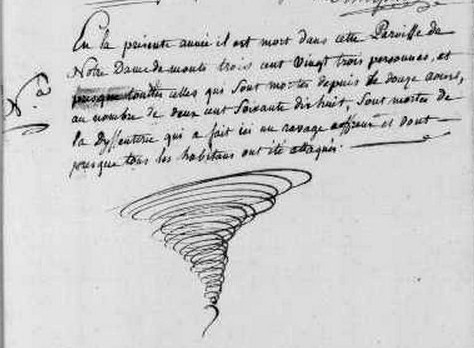 En la présente année il est mort dans cette Paroisse de
Notre Dame de monts trois cent vingt trois personnes, et
presque touttes celles qui sont mortes depuis le douze aoust,
au nombre de deux cent soixante dix huit, sont mortes de
la dyssenterie qui a fait ici un ravage affreux et dont
presque tous les habitans ont été attaqués.
N.a